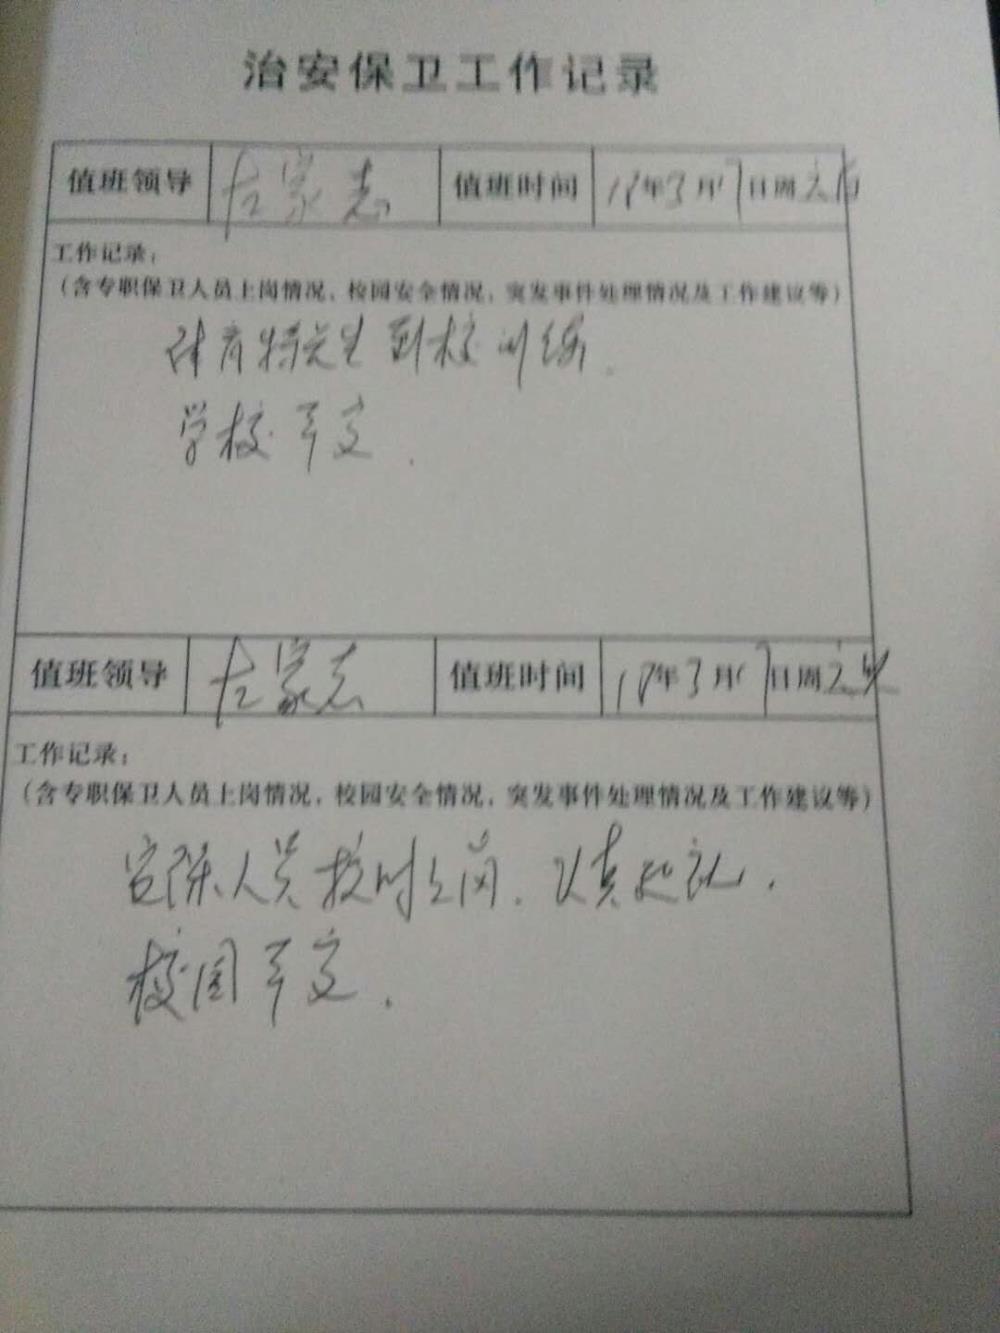 治安保卫工作记录
值班领导 左家志 值班时间 18年3月17日周六白
工作记录：
（含专职保卫人员上岗情况，校园安全情况，突发事件处理情况及工作建议等）
体育特长生到校训练.
学校平安.
值班领导 左家志 值班时间 18年3月17日周六
工作记录：
（含专职保卫人员上岗情况，校园安全情况，突发事件处理情况及工作建议等）
安保人员按时上岗.认真
校园平安.